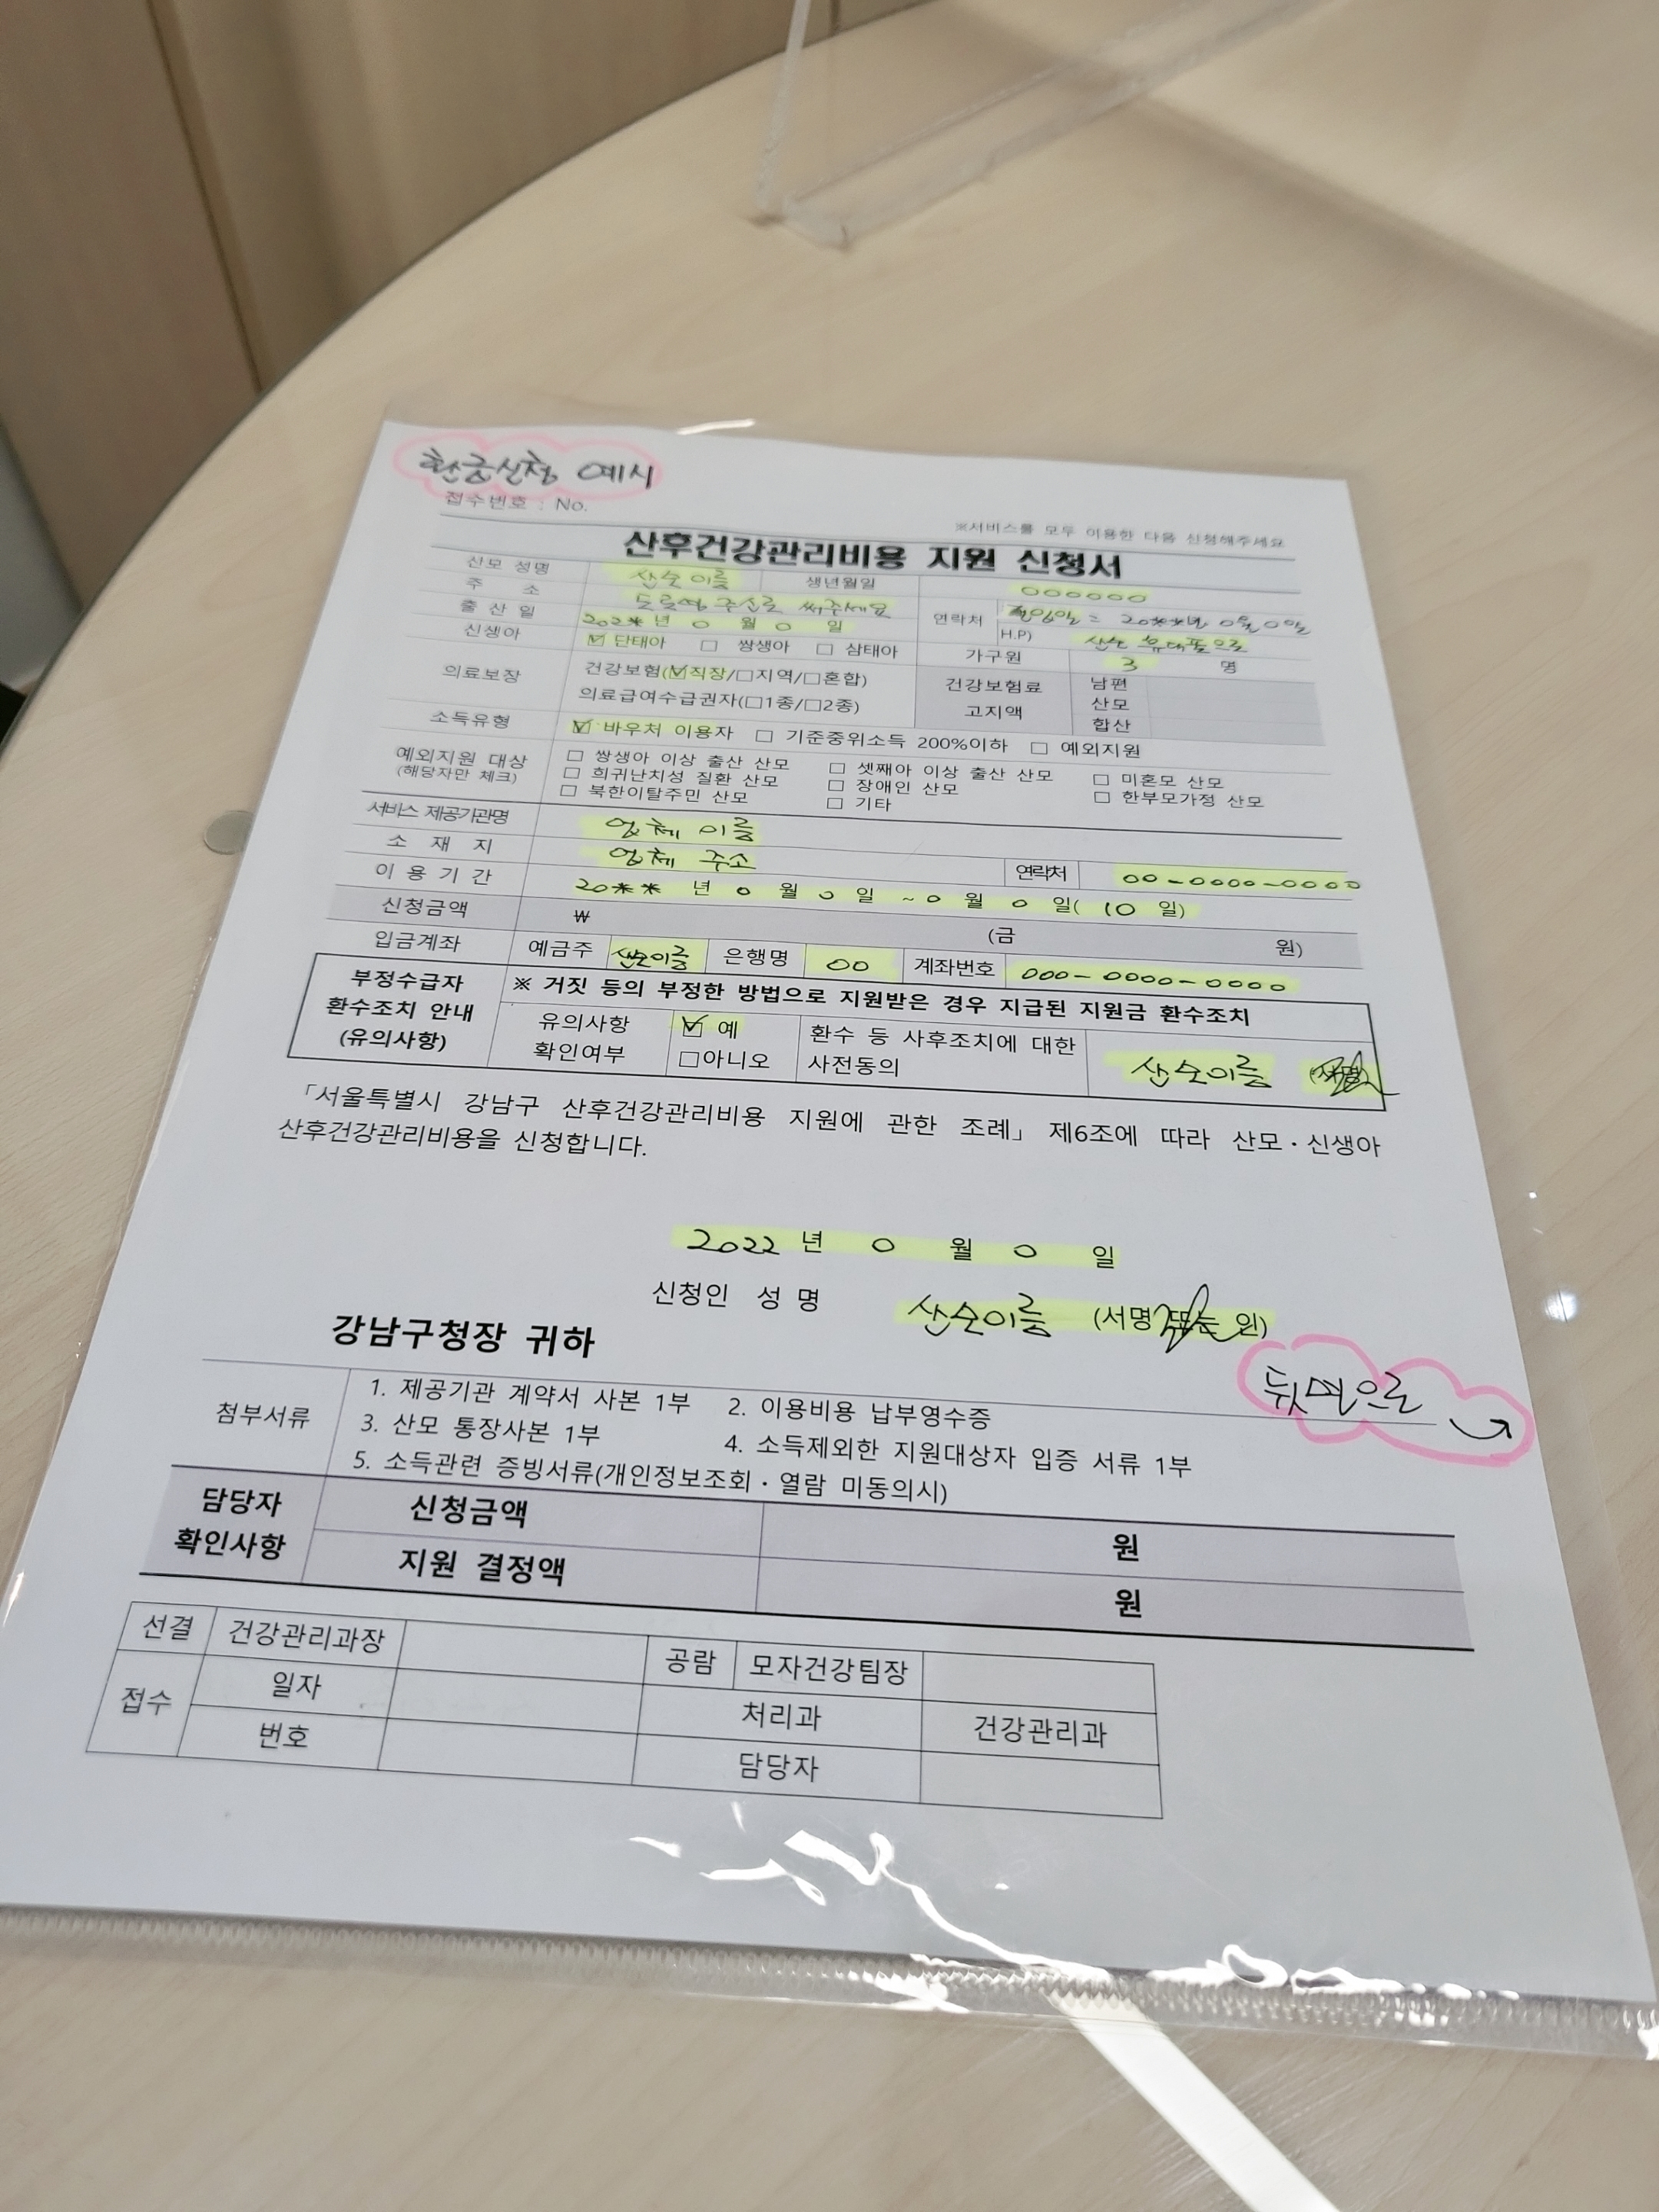 환급신청 예시
접수번호 : No.
※서비스를 모두 이용한 다음 신청해주세요
산후건강관리비용 지원 신청서
산모 성명 산모이름 생년월일 000000
주 소 도로명 주소로 써주세요 연락처 전입일 = 20**년 0월 0일
출 산 일 202*년 0 월 0 일 H.P) 산모 휴대폰으로
신생아 ☑ 단태아 □ 쌍생아 □ 삼태아 가구원 3 명
의료보장 건강보험(☑직장/□지역/□혼합) 건강보험료 고지액 남편
의료급여수급권자(□1종/□2종) 산모
합산
소득유형 ☑ 바우처 이용자 □ 기준중위소득 200%이하 □ 예외지원
예외지원 대상 □ 쌍생아 이상 출산 산모 □ 셋째아 이상 출산 산모 □ 미혼모 산모
(해당자만 체크) □ 희귀난치성 질환 산모 □ 장애인 산모 □ 한부모가정 산모
□ 북한이탈주민 산모 □ 기타
서비스 제공기관명 업체 이름
소 재 지 업체 주소 연락처 00-0000-0000
이 용 기 간 20** 년 0 월 0 일 ~ 0 월 0 일( 10 일)
신청금액 ₩ (금 원)
입금계좌 예금주 산모이름 은행명 00 계좌번호 000-0000-0000
부정수급자 환수조치 안내 (유의사항) ※ 거짓 등의 부정한 방법으로 지원받은 경우 지급된 지원금 환수조치
유의사항 확인여부 ☑ 예 □아니오 환수 등 사후조치에 대한 사전동의 산모이름 (서명)
「서울특별시 강남구 산후건강관리비용 지원에 관한 조례」 제6조에 따라 산모·신생아
산후건강관리비용을 신청합니다.
2022 년 0 월 0 일
신청인 성 명 산모이름 (서명 또는 인)
강남구청장 귀하
뒷면으로
첨부서류 1. 제공기관 계약서 사본 1부 2. 이용비용 납부영수증
3. 산모 통장사본 1부 4. 소득제외한 지원대상자 입증 서류 1부
5. 소득관련 증빙서류(개인정보조회·열람 미동의시)
담당자 확인사항 신청금액 원
지원 결정액 원
선결 건강관리과장 공람 모자건강팀장
접수 일자 처리과 건강관리과
번호 담당자